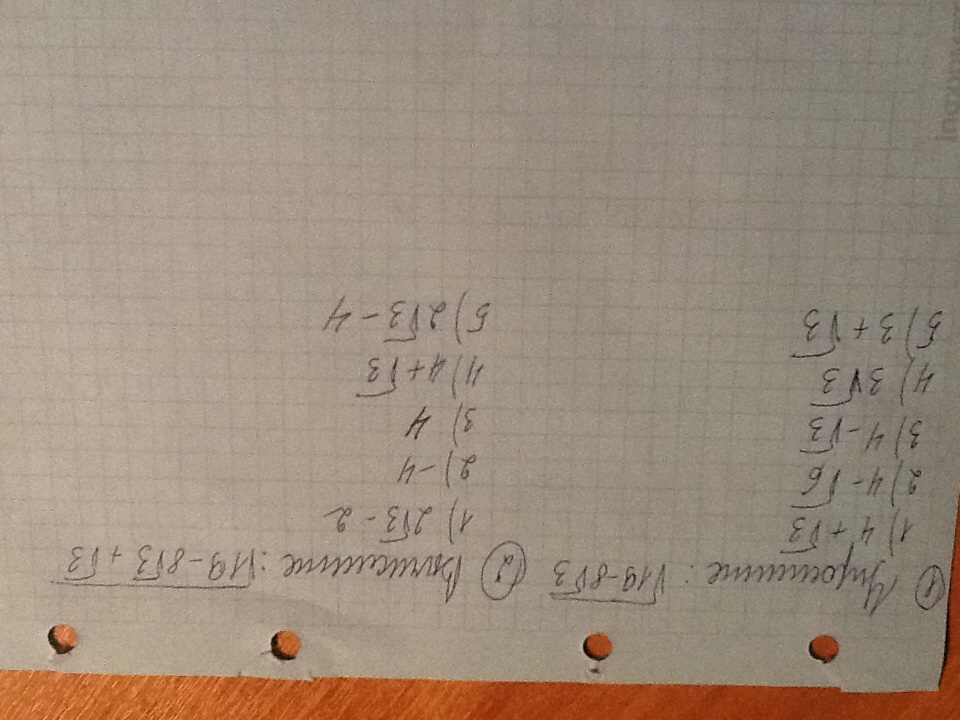 ① Упростите: √19-8√3
1) 4+√3
2) 4-√6
3) 4-√3
4) 3√3
5) 3+√3
② Вычислите: √19-8√3+√3
1) 2√3-2
2) -4
3) 4
4) 4+√3
5) 2√3-4